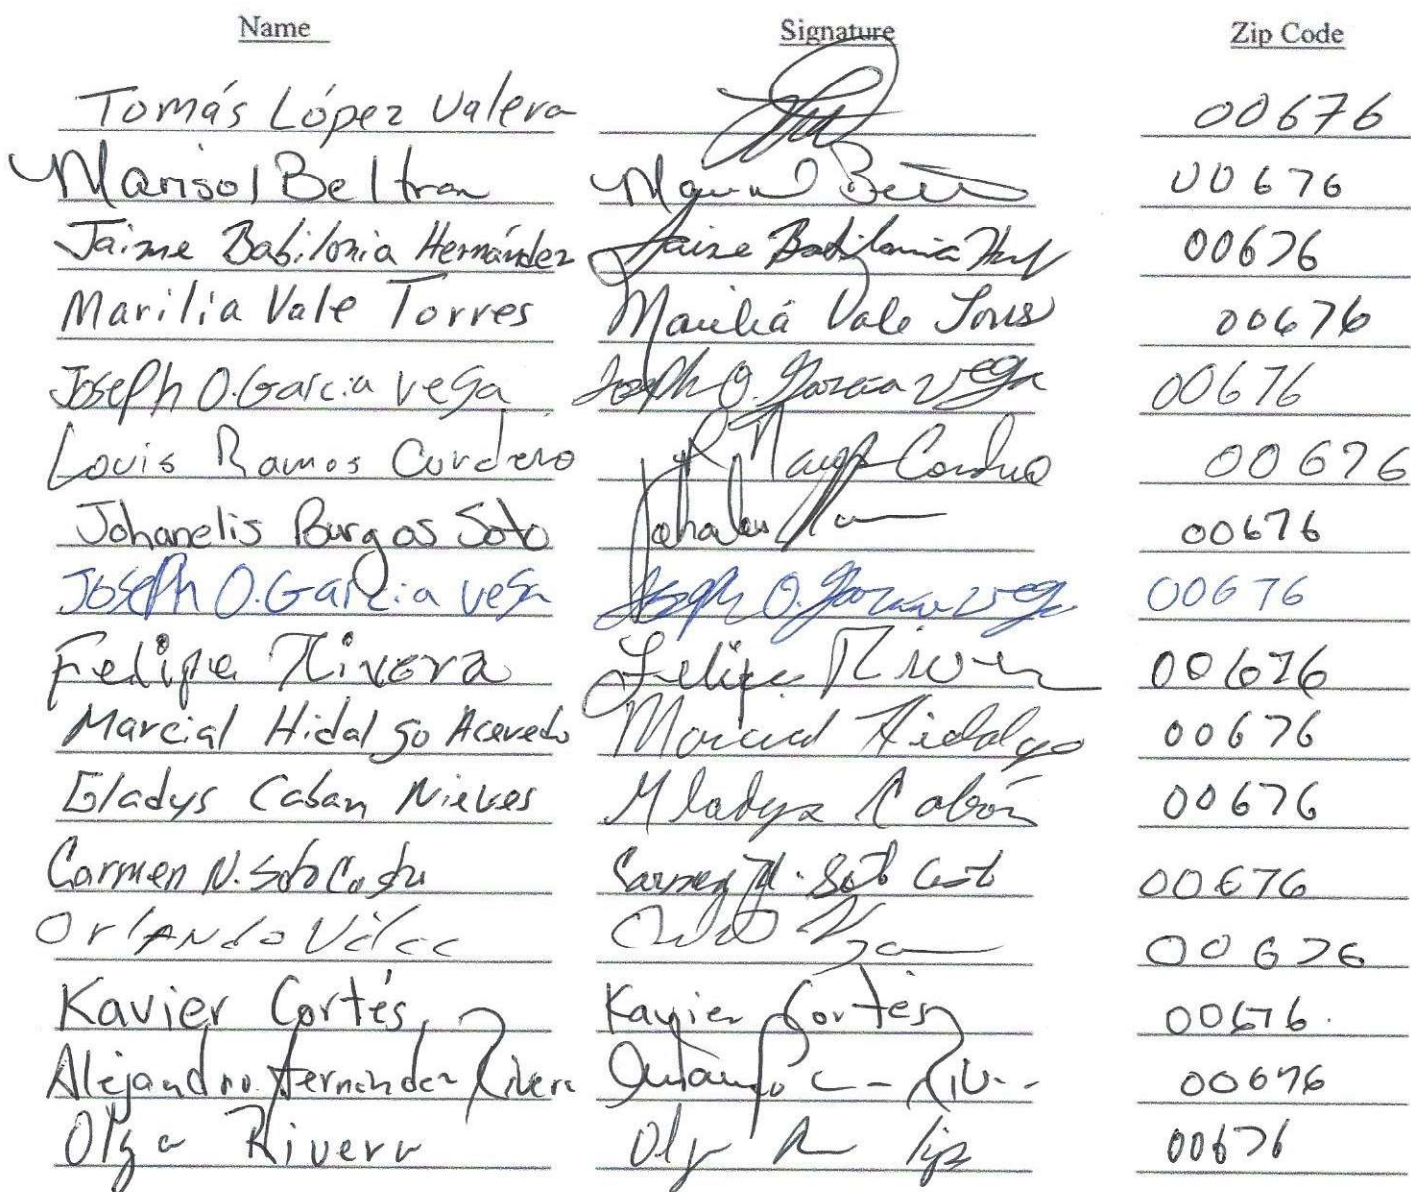 Name Signature Zip Code
Tomás López Valera 00676
Marisol Beltran 00676
Jaime Babilonia Hernández Jaime Babilonia 00676
Marilia Vale Torres Mariliá Vale Torres 00676
Joseph O. Garcia Vega Joseph O. Garcia Vega 00676
Louis Ramos Cordero 00676
Johanelis Burgos Soto 00676
Joseph O. Garcia Vega Joseph O. Garcia Vega 00676
Felipe Rivera Felipe River 00676
Marcial Hidalgo Acevedo Marcial Hidalgo 00676
Gladys Caban Nieves Gladys Cabán 00676
Carmen N. Soto Carmen N. Soto 00676
Orlando 00676
Kavier Cortés Kavier Cortés 00676
Alejandro Hernandez Rivera 00676
Olga Rivera 00676